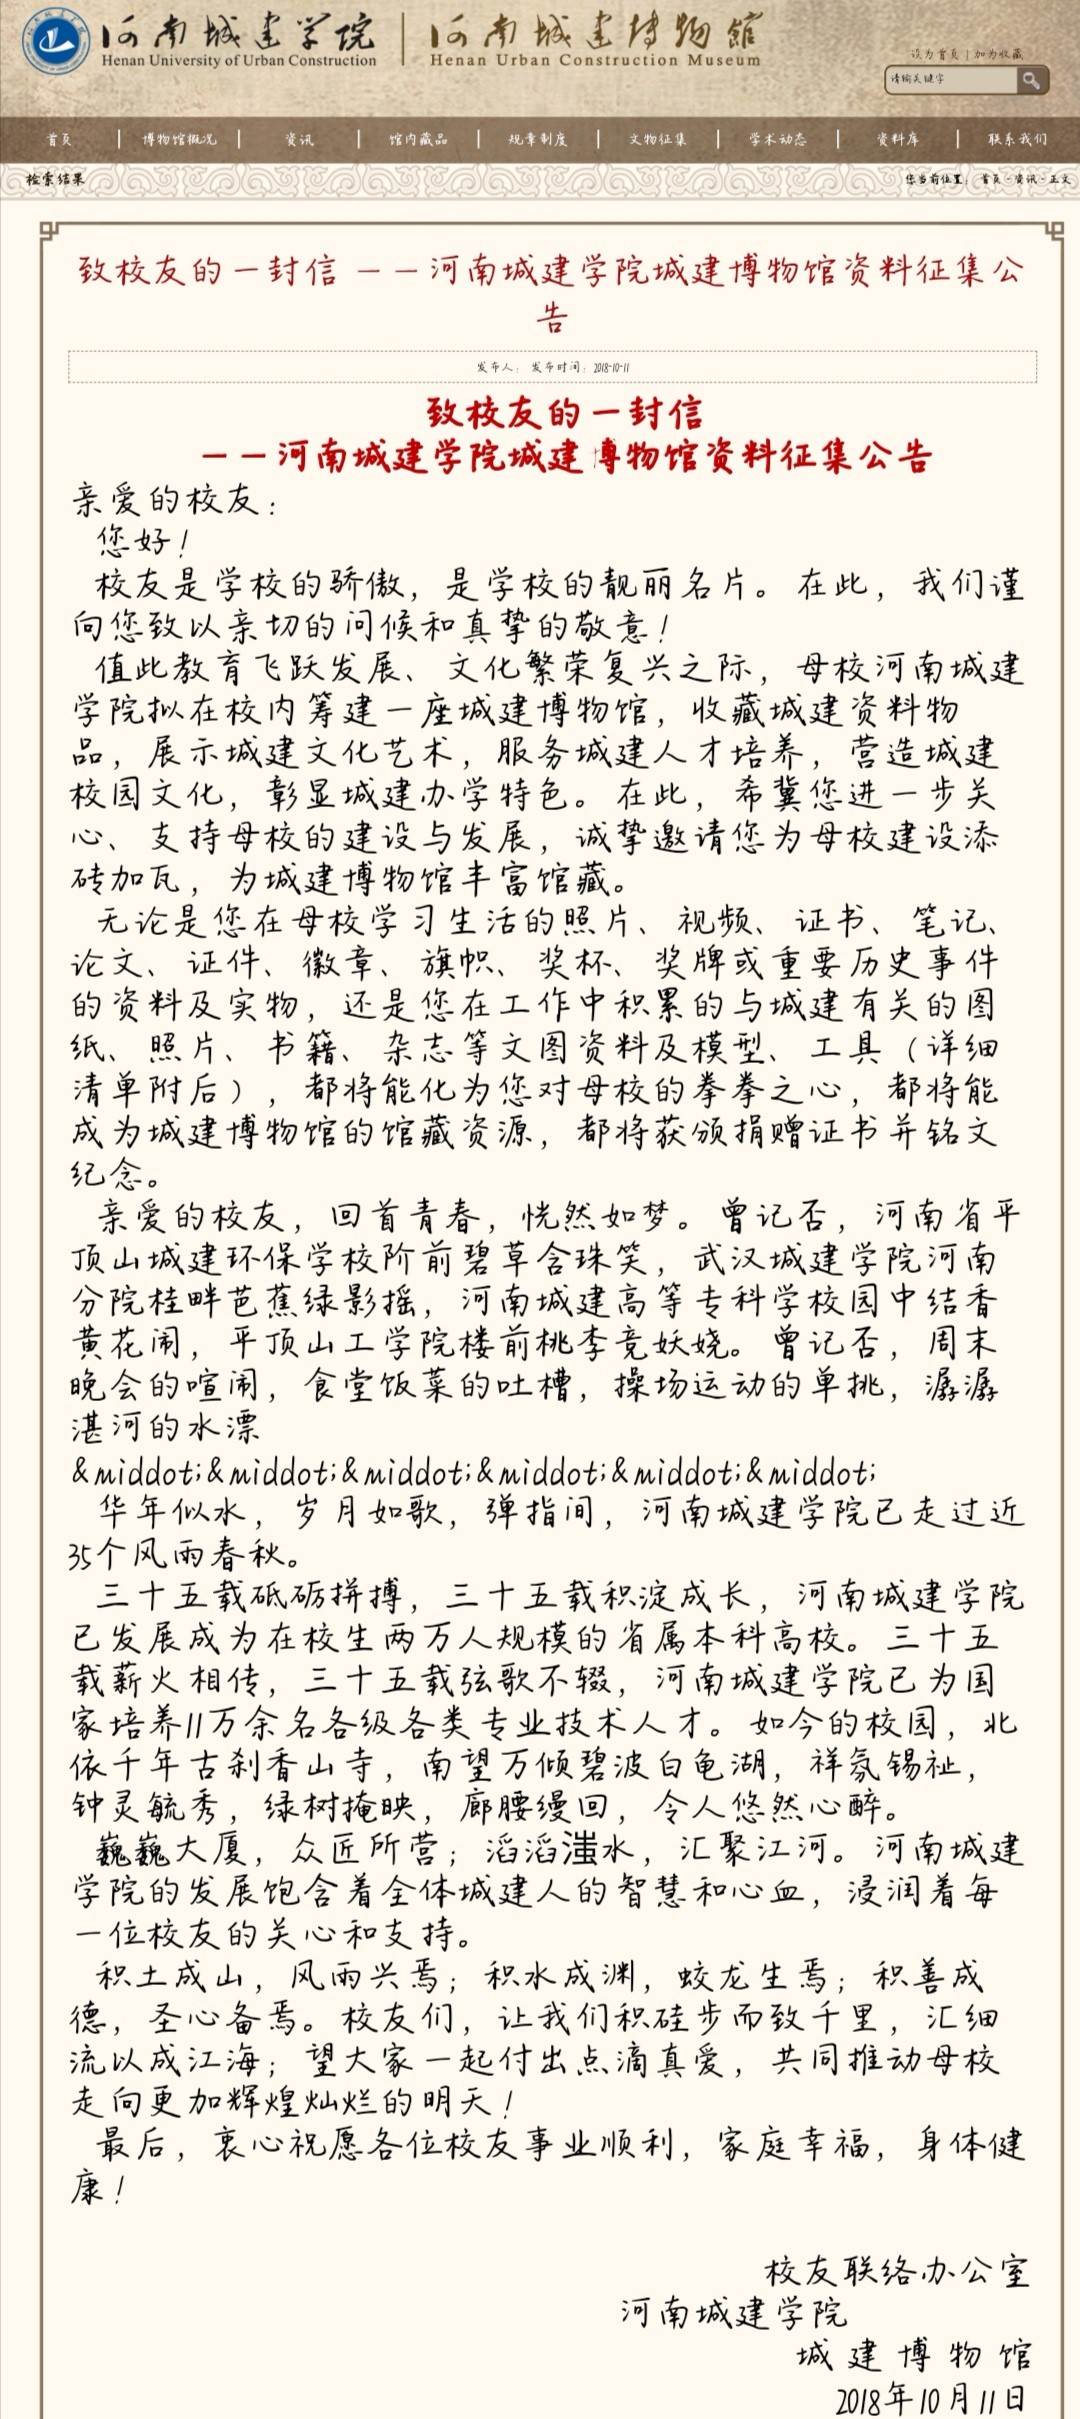 河南城建学院
Henan University of Urban Construction
河南城建博物館
Henan Urban Construction Museum
设为首页 | 加为收藏
请输关键字
首页
博物馆概况
资讯
馆内藏品
规章制度
文物征集
学术动态
资料库
联系我们
检索结果
您当前位置： 首页 - 资讯 - 正文
致校友的一封信 ——河南城建学院城建博物馆资料征集公
告
发布人： 发布时间：2018-10-11
致校友的一封信
——河南城建学院城建博物馆资料征集公告
亲爱的校友：
您好！
校友是学校的骄傲，是学校的靓丽名片。在此，我们谨
向您致以亲切的问候和真挚的敬意！
值此教育飞跃发展、文化繁荣复兴之际，母校河南城建
学院拟在校内筹建一座城建博物馆，收藏城建资料物
品，展示城建文化艺术，服务城建人才培养，营造城建
校园文化，彰显城建办学特色。在此，希冀您进一步关
心、支持母校的建设与发展，诚挚邀请您为母校建设添
砖加瓦，为城建博物馆丰富馆藏。
无论是您在母校学习生活的照片、视频、证书、笔记、
论文、证件、徽章、旗帜、奖杯、奖牌或重要历史事件
的资料及实物，还是您在工作中积累的与城建有关的图
纸、照片、书籍、杂志等文图资料及模型、工具（详细
清单附后），都将能化为您对母校的拳拳之心，都将能
成为城建博物馆的馆藏资源，都将获颁捐赠证书并铭文
纪念。
亲爱的校友，回首青春，恍然如梦。曾记否，河南省平
顶山城建环保学校阶前碧草含珠笑，武汉城建学院河南
分院桂畔芭蕉绿影摇，河南城建高等专科学校园中结香
黄花闹，平顶山工学院楼前桃李竞妖娆。曾记否，周末
晚会的喧闹，食堂饭菜的吐槽，操场运动的单挑，潺潺
湛河的水漂
&middot;&middot;&middot;&middot;&middot;&middot;
华年似水，岁月如歌，弹指间，河南城建学院已走过近
35个风雨春秋。
三十五载砥砺拼搏，三十五载积淀成长，河南城建学院
已发展成为在校生两万人规模的省属本科高校。三十五
载薪火相传，三十五载弦歌不辍，河南城建学院已为国
家培养11万余名各级各类专业技术人才。如今的校园，北
依千年古刹香山寺，南望万倾碧波白龟湖，祥氛锡祉，
钟灵毓秀，绿树掩映，廊腰缦回，令人悠然心醉。
巍巍大厦，众匠所营；滔滔滍水，汇聚江河。河南城建
学院的发展饱含着全体城建人的智慧和心血，浸润着每
一位校友的关心和支持。
积土成山，风雨兴焉；积水成渊，蛟龙生焉；积善成
德，圣心备焉。校友们，让我们积硅步而致千里，汇细
流以成江海；望大家一起付出点滴真爱，共同推动母校
走向更加辉煌灿烂的明天！
最后，衷心祝愿各位校友事业顺利，家庭幸福，身体健
康！
校友联络办公室
河南城建学院
城建博物馆
2018年10月11日